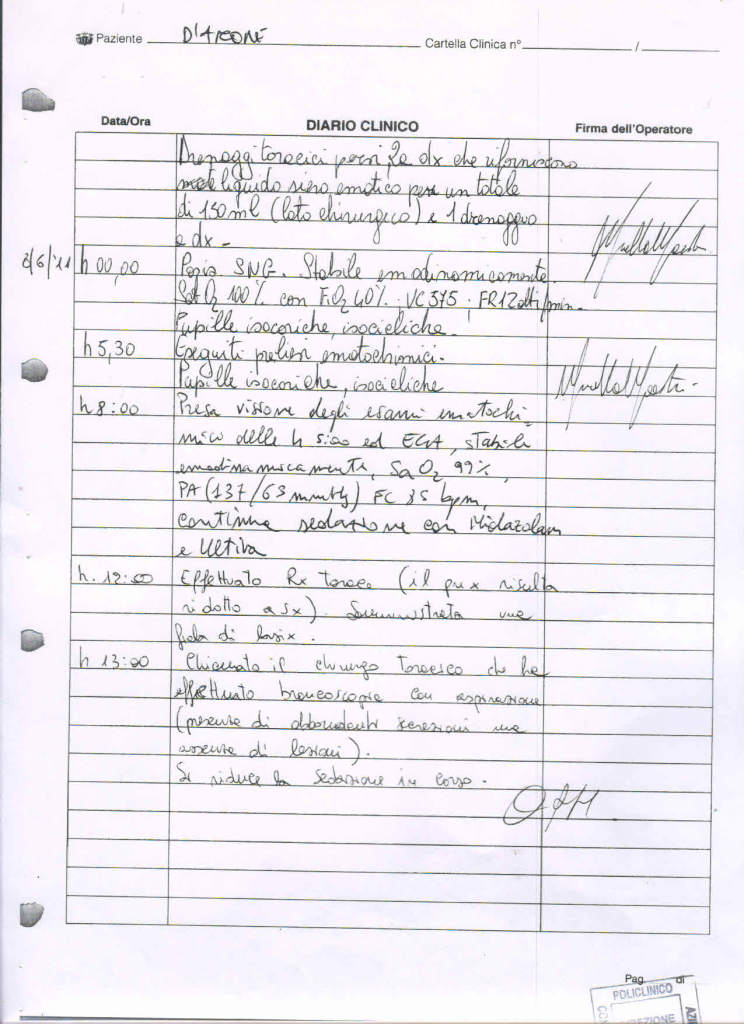 Paziente D'
Cartella Clinica n° /
Data/Ora DIARIO CLINICO Firma dell'Operatore
Drenaggi toracici pervi 2 a dx che riforniscono
liquido siero ematico per un totale
di 150 ml (lato chirurgico) e 1 drenaggio
a dx -
/6/11 h 00,00 SNG. Stabile emodinamicamente
Sat O2 100% con FiO2 40% . VC 575 . FR 12 atti/min -
Pupille isocoriche, isocicliche.
h 5,30 Eseguiti prelievi ematochimici.
Pupille isocoriche, isocicliche
h 8:00 Presa visione degli esami ematochi
mici delle h ed EGA, stabile
emodinamicamente, SaO2 99%,
PA (137/63 mmHg) FC 85 bpm,
continua sedazione con Midazolam
e Ultiva
h. 12:00 Effettuato Rx torace (il pnx risulta
ridotto a sx). Somministrata una
fiala di lasix .
h 13:00 Chiamato il chirurgo toracico che ha
effettuato broncoscopia con aspirazione
(presenza di abbondanti secrezioni ma
assenza di lesioni).
Si riduce la sedazione in corso .
Pag. di
POLICLINICO